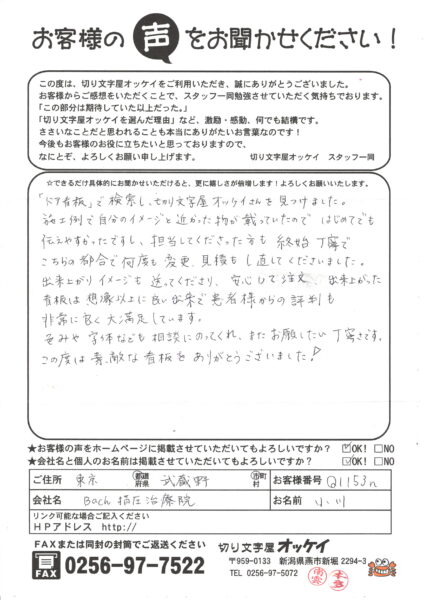 お客様の声をお聞かせください！
この度は、切り文字屋オッケイをご利用いただき、誠にありがとうございました。
お客様からご感想をいただくことで、スタッフ一同勉強させていただく気持ちでおります。
「この部分は期待していた以上だった。」
「切り文字屋オッケイを選んだ理由」など、激励・感動、何でも結構です。
ささいなことだと思われることも本当にありがたいお言葉なのです！
今後もお客様のお役に立ちたいと思っておりますので、
なにとぞ、よろしくお願い申し上げます。 切り文字屋オッケイ スタッフ一同
☆できるだけ具体的にお聞かせいただけると、更に嬉しさが倍増します！よろしくお願いいたします。
「ドア看板」で検索し、切り文字屋オッケイさんを見つけました。
施工例で自分のイメージと近かった物が載っていたので はじめてでも
伝えやすかったですし、担当してくださった方も 終始 丁寧で
こちらの都合で何度も変更、見積もし直してくださいました。
出来上がりイメージも 送ってくださり、安心して注文 出来上がった
看板は想像以上に良い出来で患者様からの評判も
非常に良く大満足しています。
歪みや字体なども相談にのってくれ、またお願いしたい丁寧さです。
この度は素敵な看板をありがとうございました！
★お客様の声をホームページに掲載させていただいてもよろしいですか？ ☑OK! □NO
★会社名と個人のお名前は掲載させていただいてもよろしいですか？ ☑OK! □NO
ご住所 東京 都道府県 武蔵野 市町村 お客様番号 Q1153n
会社名 Bach 指圧治療院 お名前 小川
リンク可能な場合ご記入ください
HPアドレス http://
FAXまたは同封の封筒でご返送ください
FAX 0256-97-7522
切り文字屋オッケイ
〒959-0133 新潟県燕市新堀 2294-3
TEL 0256-97-5072